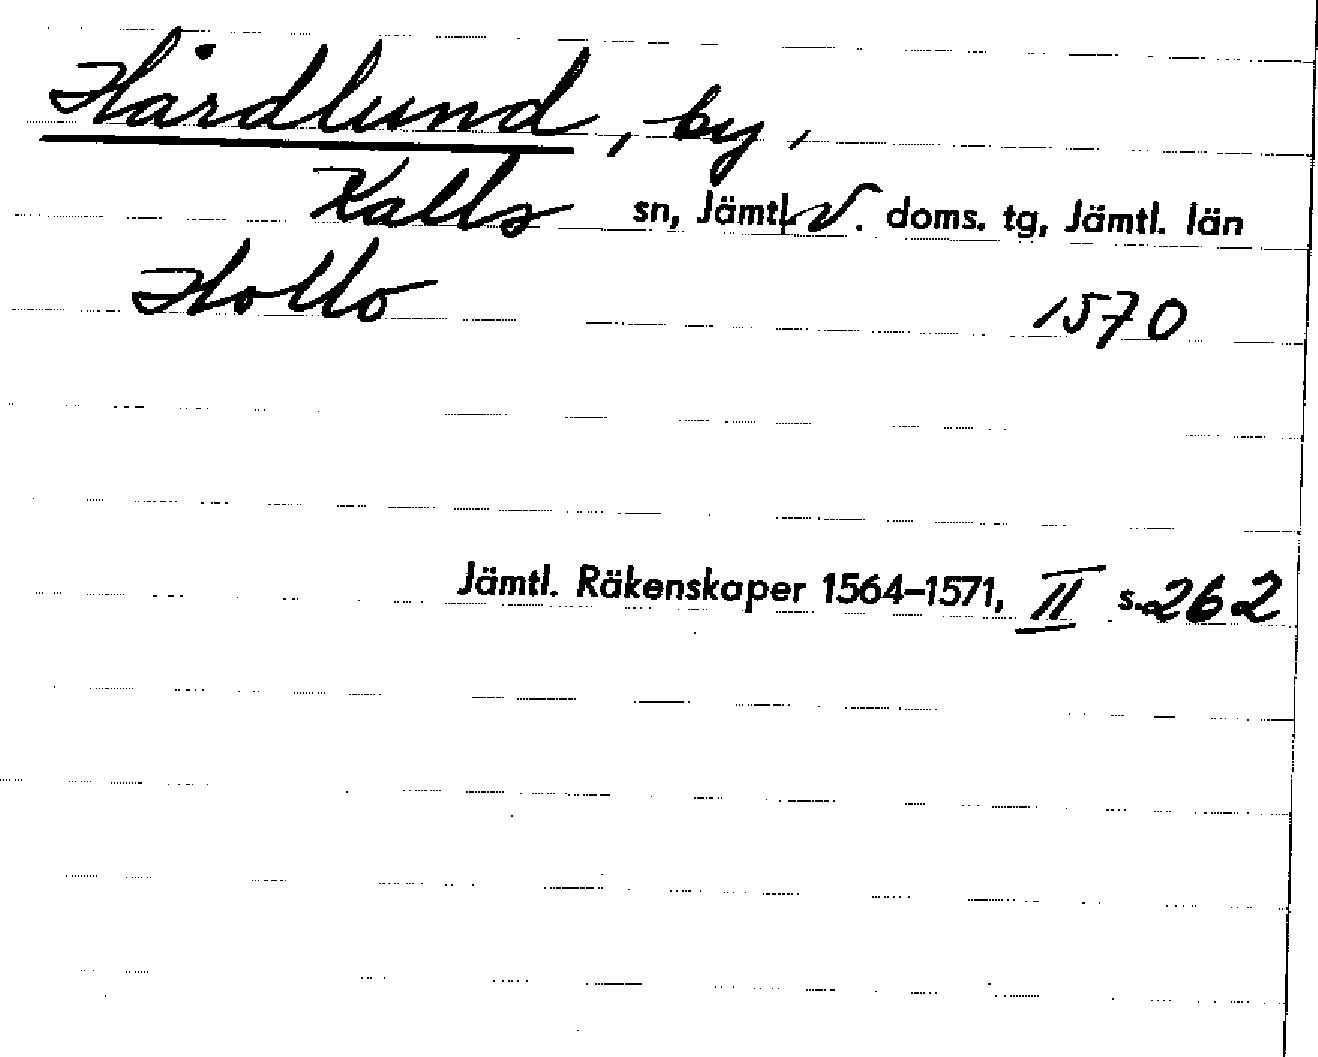 Hårdlund, by,
Kalls sn, Jämtl. V. doms. tg, Jämtl. län
Hollo 1570
Jämtl. Räkenskaper 1564–1571, II s. 262